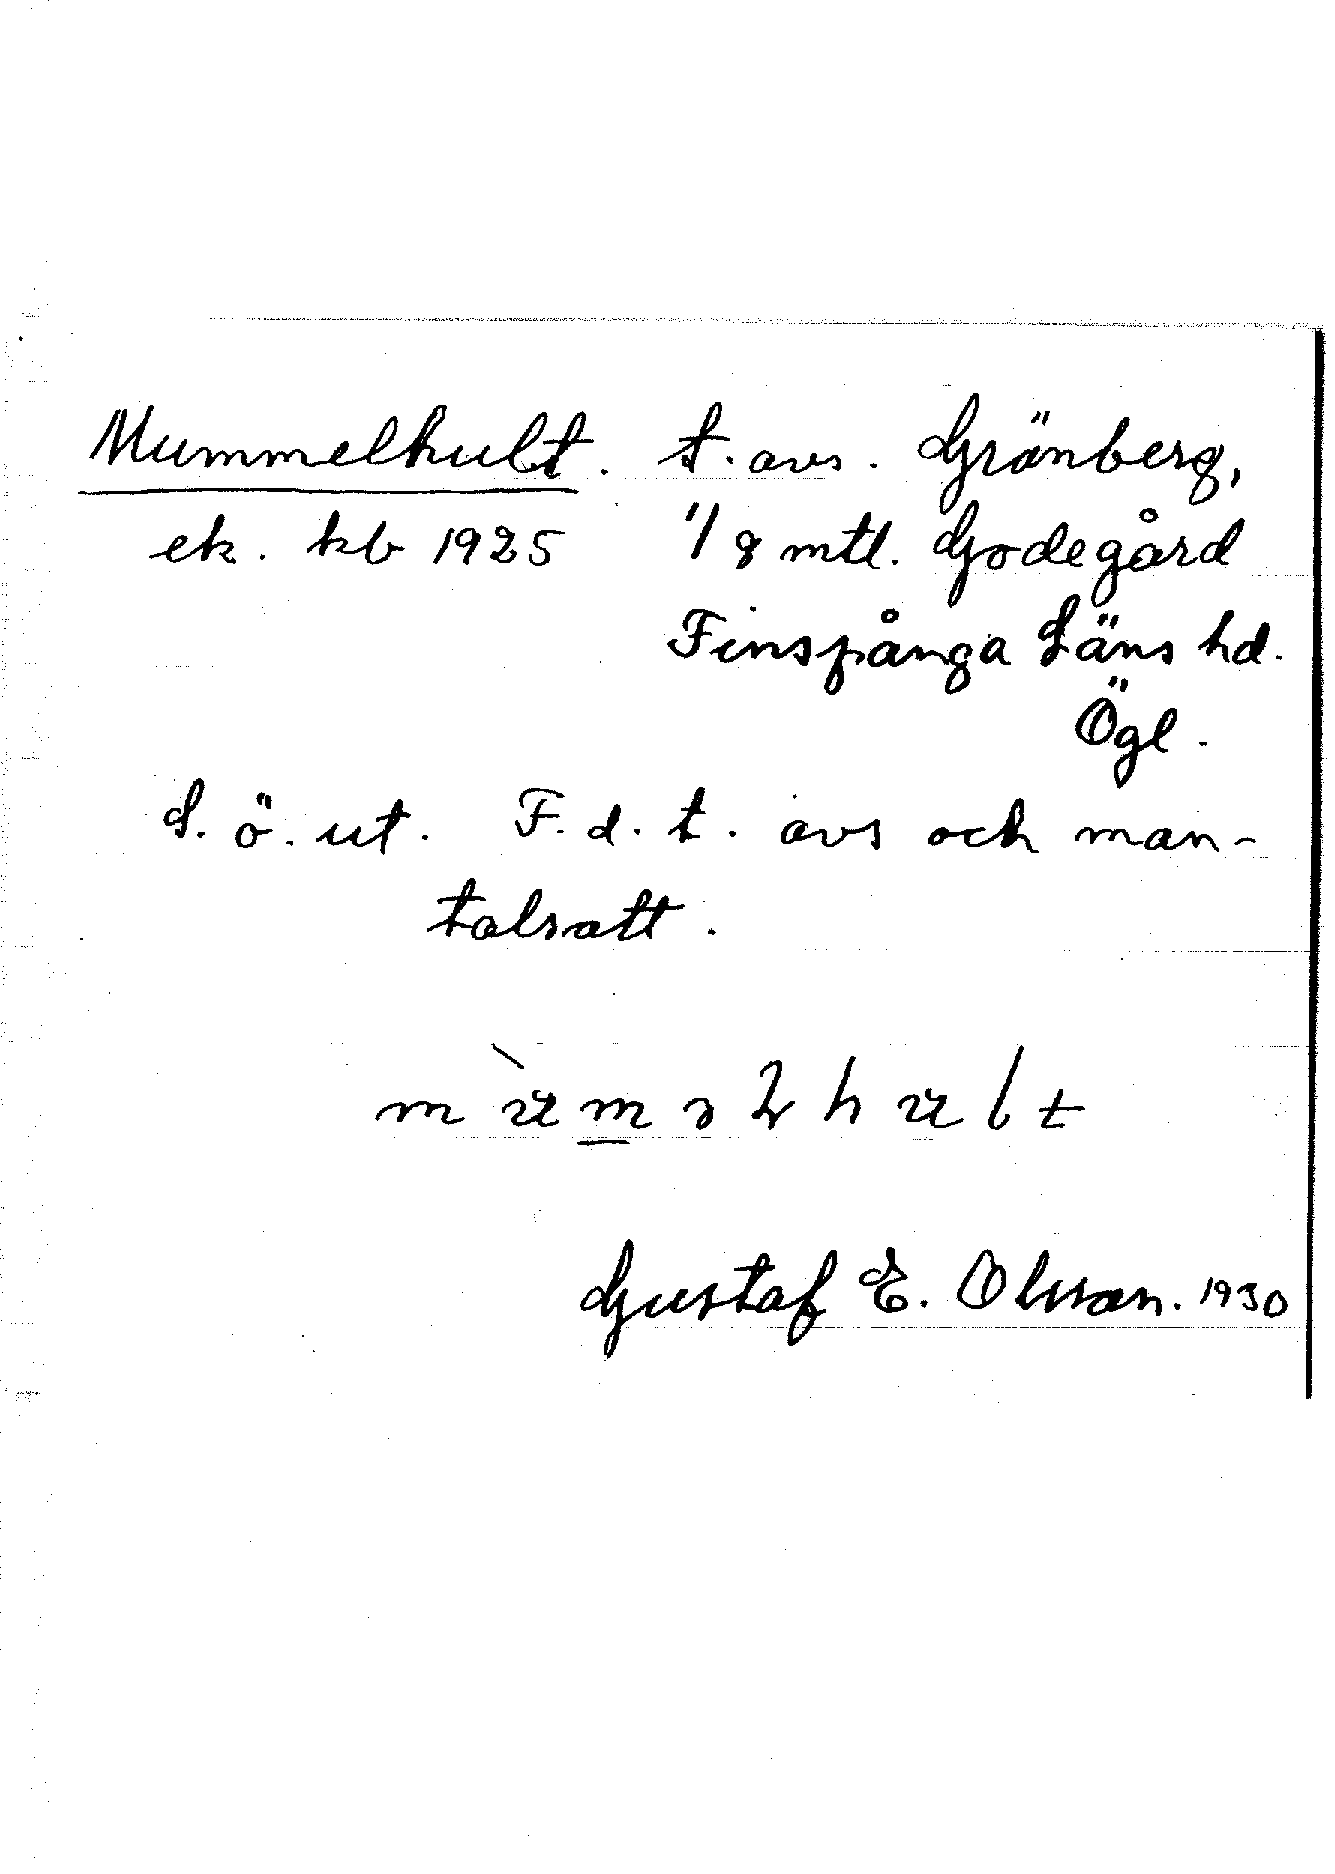 Mummelhult. t. avs. Grönberg,
ek. kb 1925 1/8 mtl. Godegård
Finspånga Läns hd.
Ögl.
S. ö. ut. F. d. t. avs och man-
talsatt.
Gustaf E. Olsson. 1930